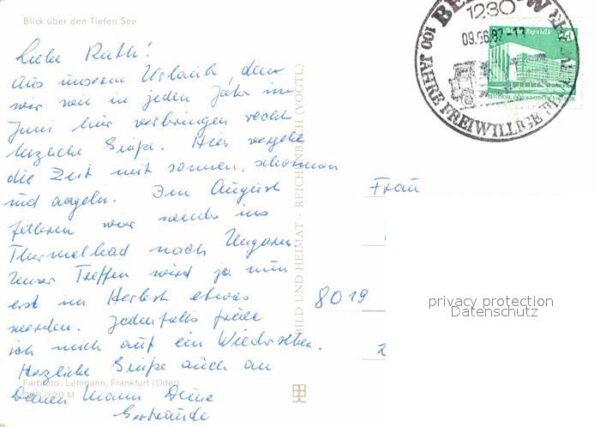 Blick über den Tiefen See
Liebe Ruth!
Aus unserem Urlaub, den
wir wie in jeden Jahr im
Juni hier verbringen recht
herzliche Grüße. Hier vergeht
die Zeit mit sonnen, schwimmen
und angeln. Im August
fahren wir wieder ins
Thermalbad nach Ungarn
Unser Treffen wird ja nun
erst im Herbst etwas
werden. Jedenfalls freue
ich mich auf ein Wiedersehen.
Herzliche Grüße auch an
Deinen Mann Deine
Gertraude
Farbfoto: Lehmann, Frankfurt (Oder)
0,20 M
BILD UND HEIMAT · REICHENBACH (VOGTL)
Frau
8019
1230
09.06.87
100 JAHRE FREIWILLIGE
privacy protection
Datenschutz